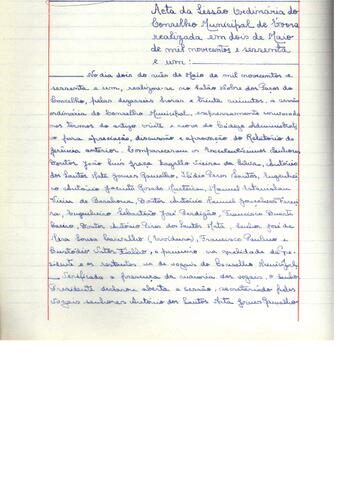 Acta da Sessão Ordinária do
Conselho Municipal de Évora
realizada em dois de Maio
de mil novecentos e sessenta
e um:
No dia dois do mês de Maio de mil novecentos e
sessenta e um, realizou-se no Salão Nobre dos Paços do
Concelho, pelas dezasseis horas e trinta minutos, a sessão
ordinária do Conselho Municipal, expressamente convocada
nos termos do artigo vinte e nove do Código Administrati
vo para apreciação, discussão e aprovação do Relatório da
gerência anterior. Compareceram os Excelentíssimos Senhores
Doutor João Luís Vieira da Silva, António
dos Santos Gomes Ramalho, Santos, Engenhei
ro António Jacinto Manuel
Vieira de Barahona, Doutor António Manuel
Engenheiro Sebastião José Perdigão, Francisco Duarte
Doutor António dos Santos Senhor José de
Sousa Carvalho Francisco Paulino e
Custódio o primeiro na qualidade de pre
sidente e os restantes na de vogais do Conselho Municipal.
Verificada a presença da maioria dos vogais, o Senhor
Presidente declarou aberta a sessão, secretariado pelos
vogais senhores António dos Santos Gomes Ramalho